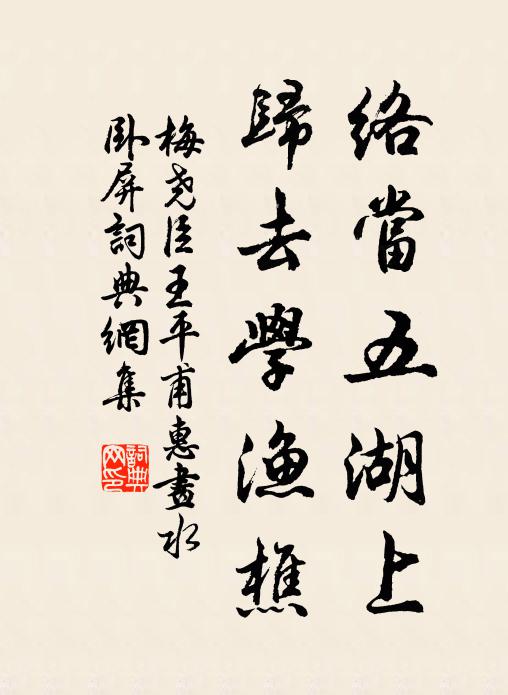 絡當五湖上
歸去學漁樵
梅尧臣王平甫惠畫水
卧屏詞典網集
詞典
网印